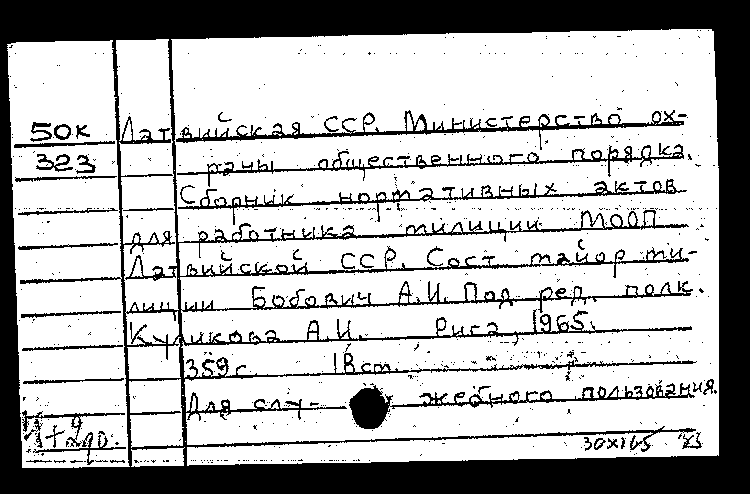 50к Латвийская ССР. Министерство ох-
323 раны общественного порядка.
Сборник нормативных актов
для работника милиции МООП
Латвийской ССР. Сост майор ми-
лиции Бобович А.И. Под ред. полк.
Куликова А.И. Рига, 1965.
359 с.
Для слу- жебного пользования.
30х165